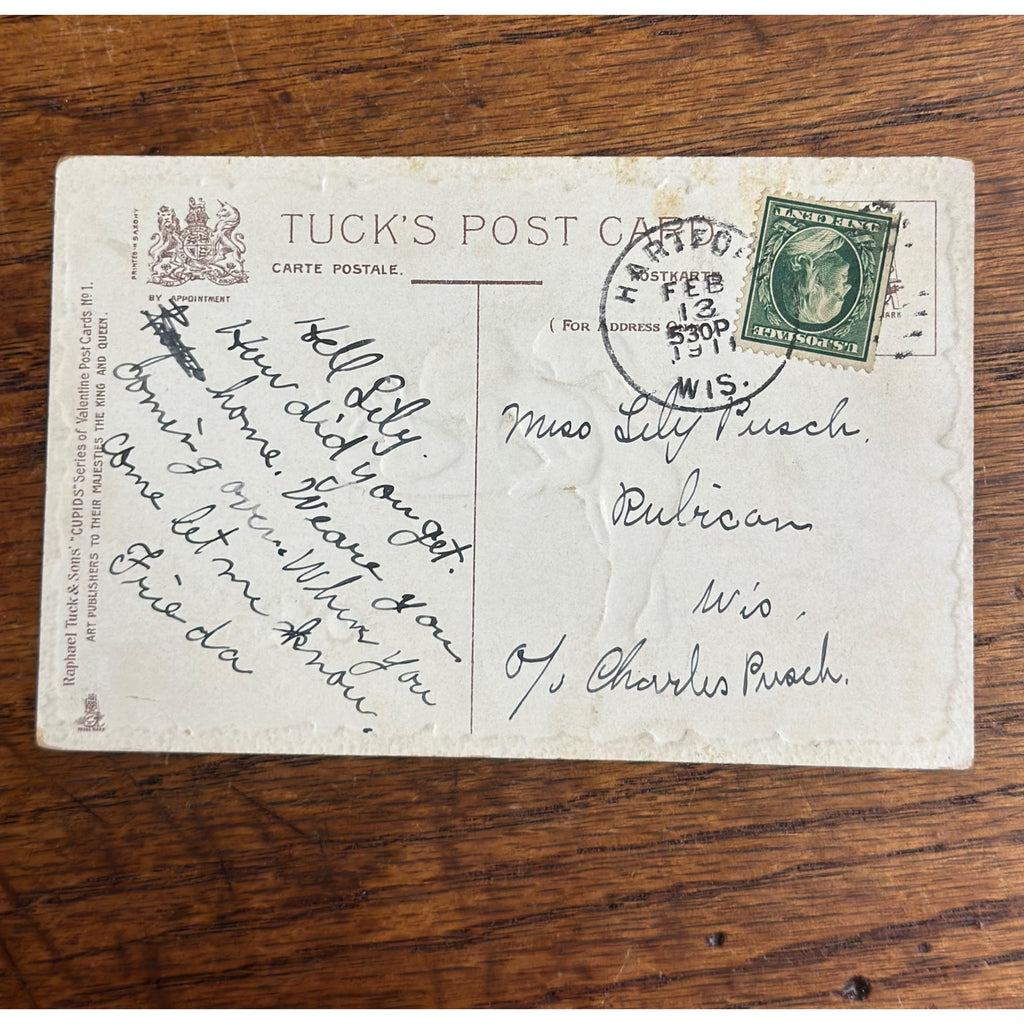 TUCK'S POST CARD
CARTE POSTALE.
POSTKARTE
BY APPOINTMENT
PRINTED IN SAXONY
(FOR ADDRESS ONLY
HARTFORD
FEB
13
530P
1911
WIS.
ONE CENT
U.S. POSTAGE
Raphael Tuck & Sons' "CUPIDS" Series of Valentine Post Cards No 1.
ART PUBLISHERS TO THEIR MAJESTIES THE KING AND QUEEN.
TRADE MARK
Hell Lily.
How did you get.
home. Weare you
coming over. When you
come let me know.
Frieda
Miss Lily Pusch,
Rubican
Wis,
c/o Charles Pusch.